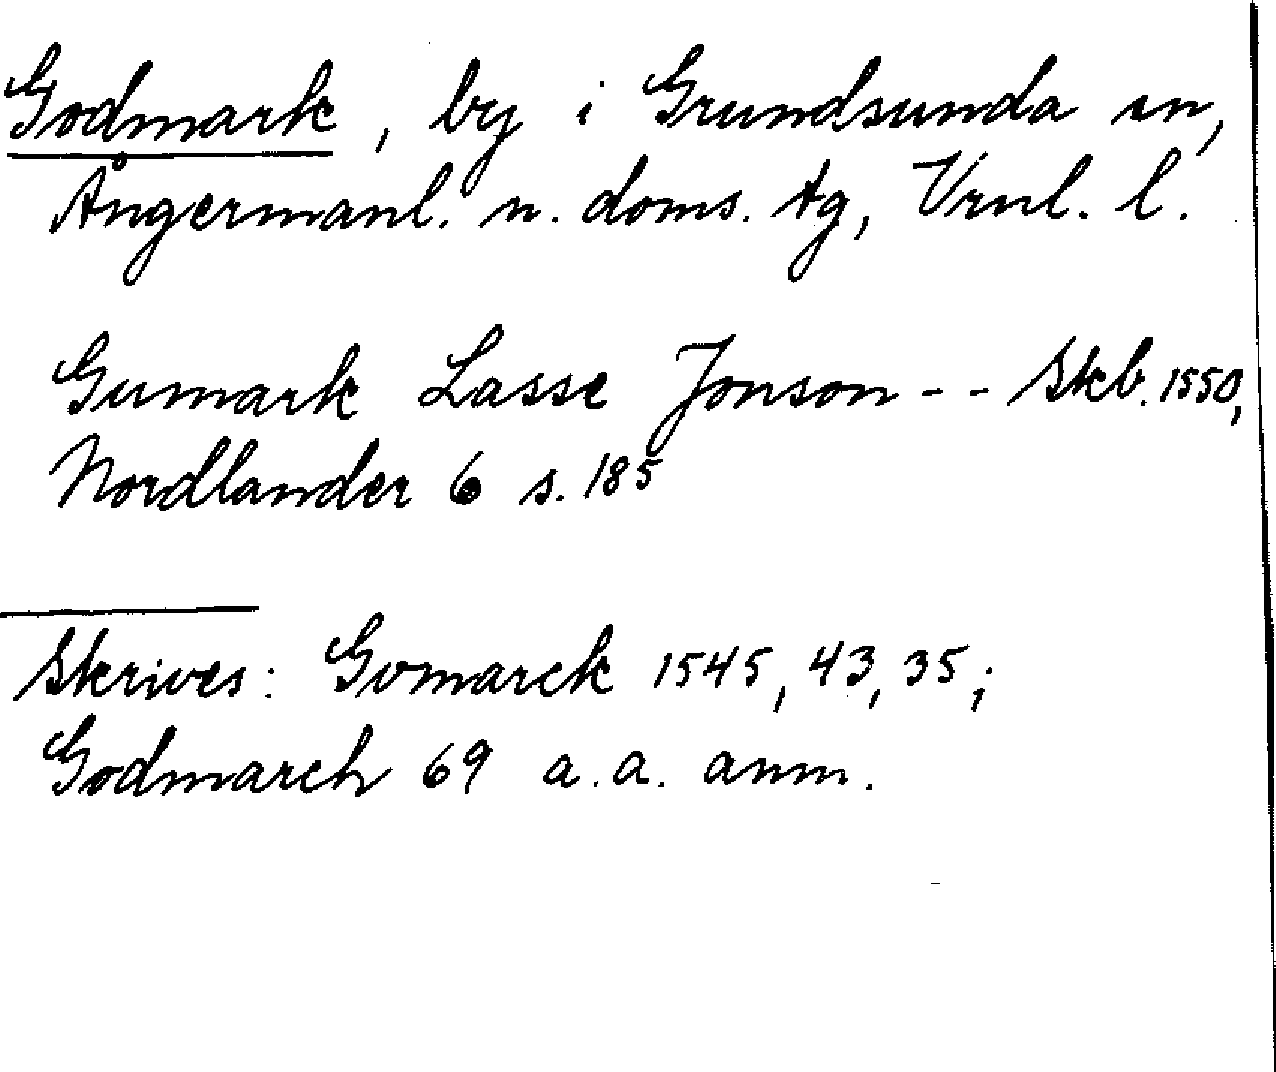 Godmark, by i Grundsunda sn,
Ångermanl. n. doms. tg, Vrnl. l.
Gumark Lasse Jonson -- Skb. 1550,
Nordlander 6 s. 185
Skrives: Gomarck 1545, 43, 35,;
Godmarch 69 a.a. anm.